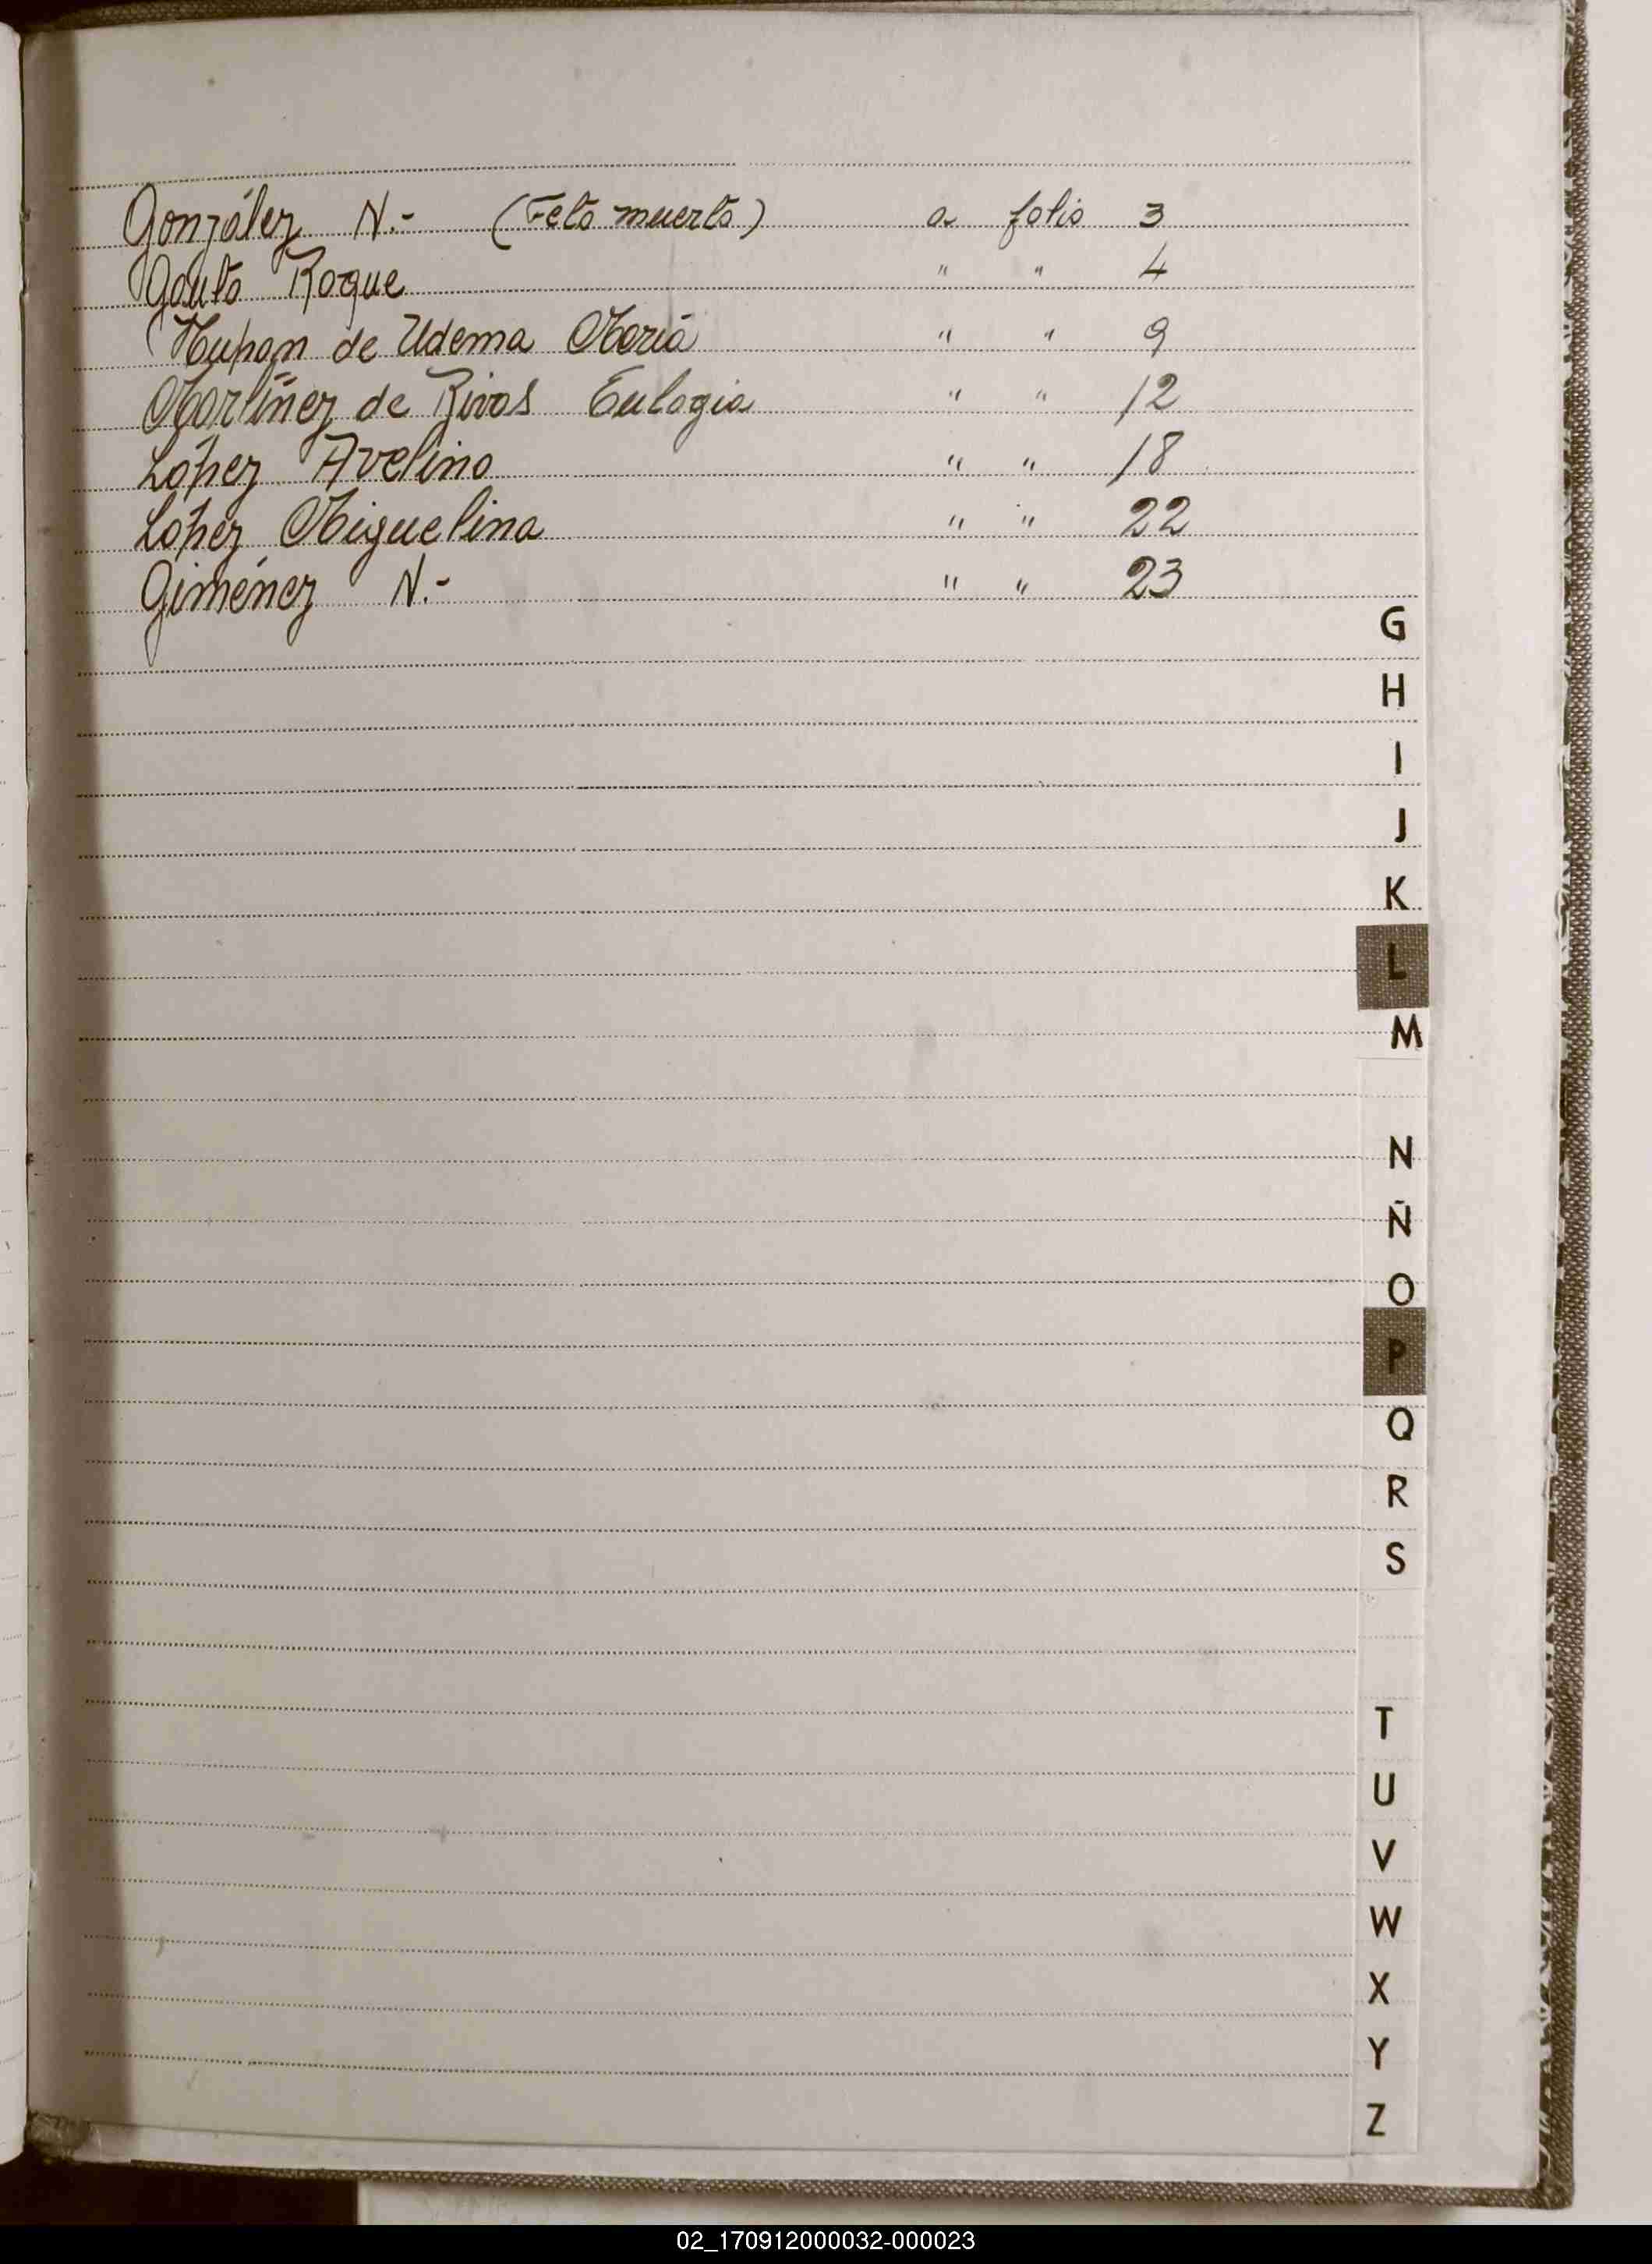 González N.- (Feto muerto) a folio 3
Gauto Roque " " 4
de Udema María " " 9
Martínez de Rivas Eulogia " " 12
López Avelino " " 18
López Miguelina " " 22
Giménez N.- " " 23
G
H
I
J
K
L
M
N
Ñ
O
P
Q
R
S
T
U
V
W
X
Y
Z
02_170912000032-000023